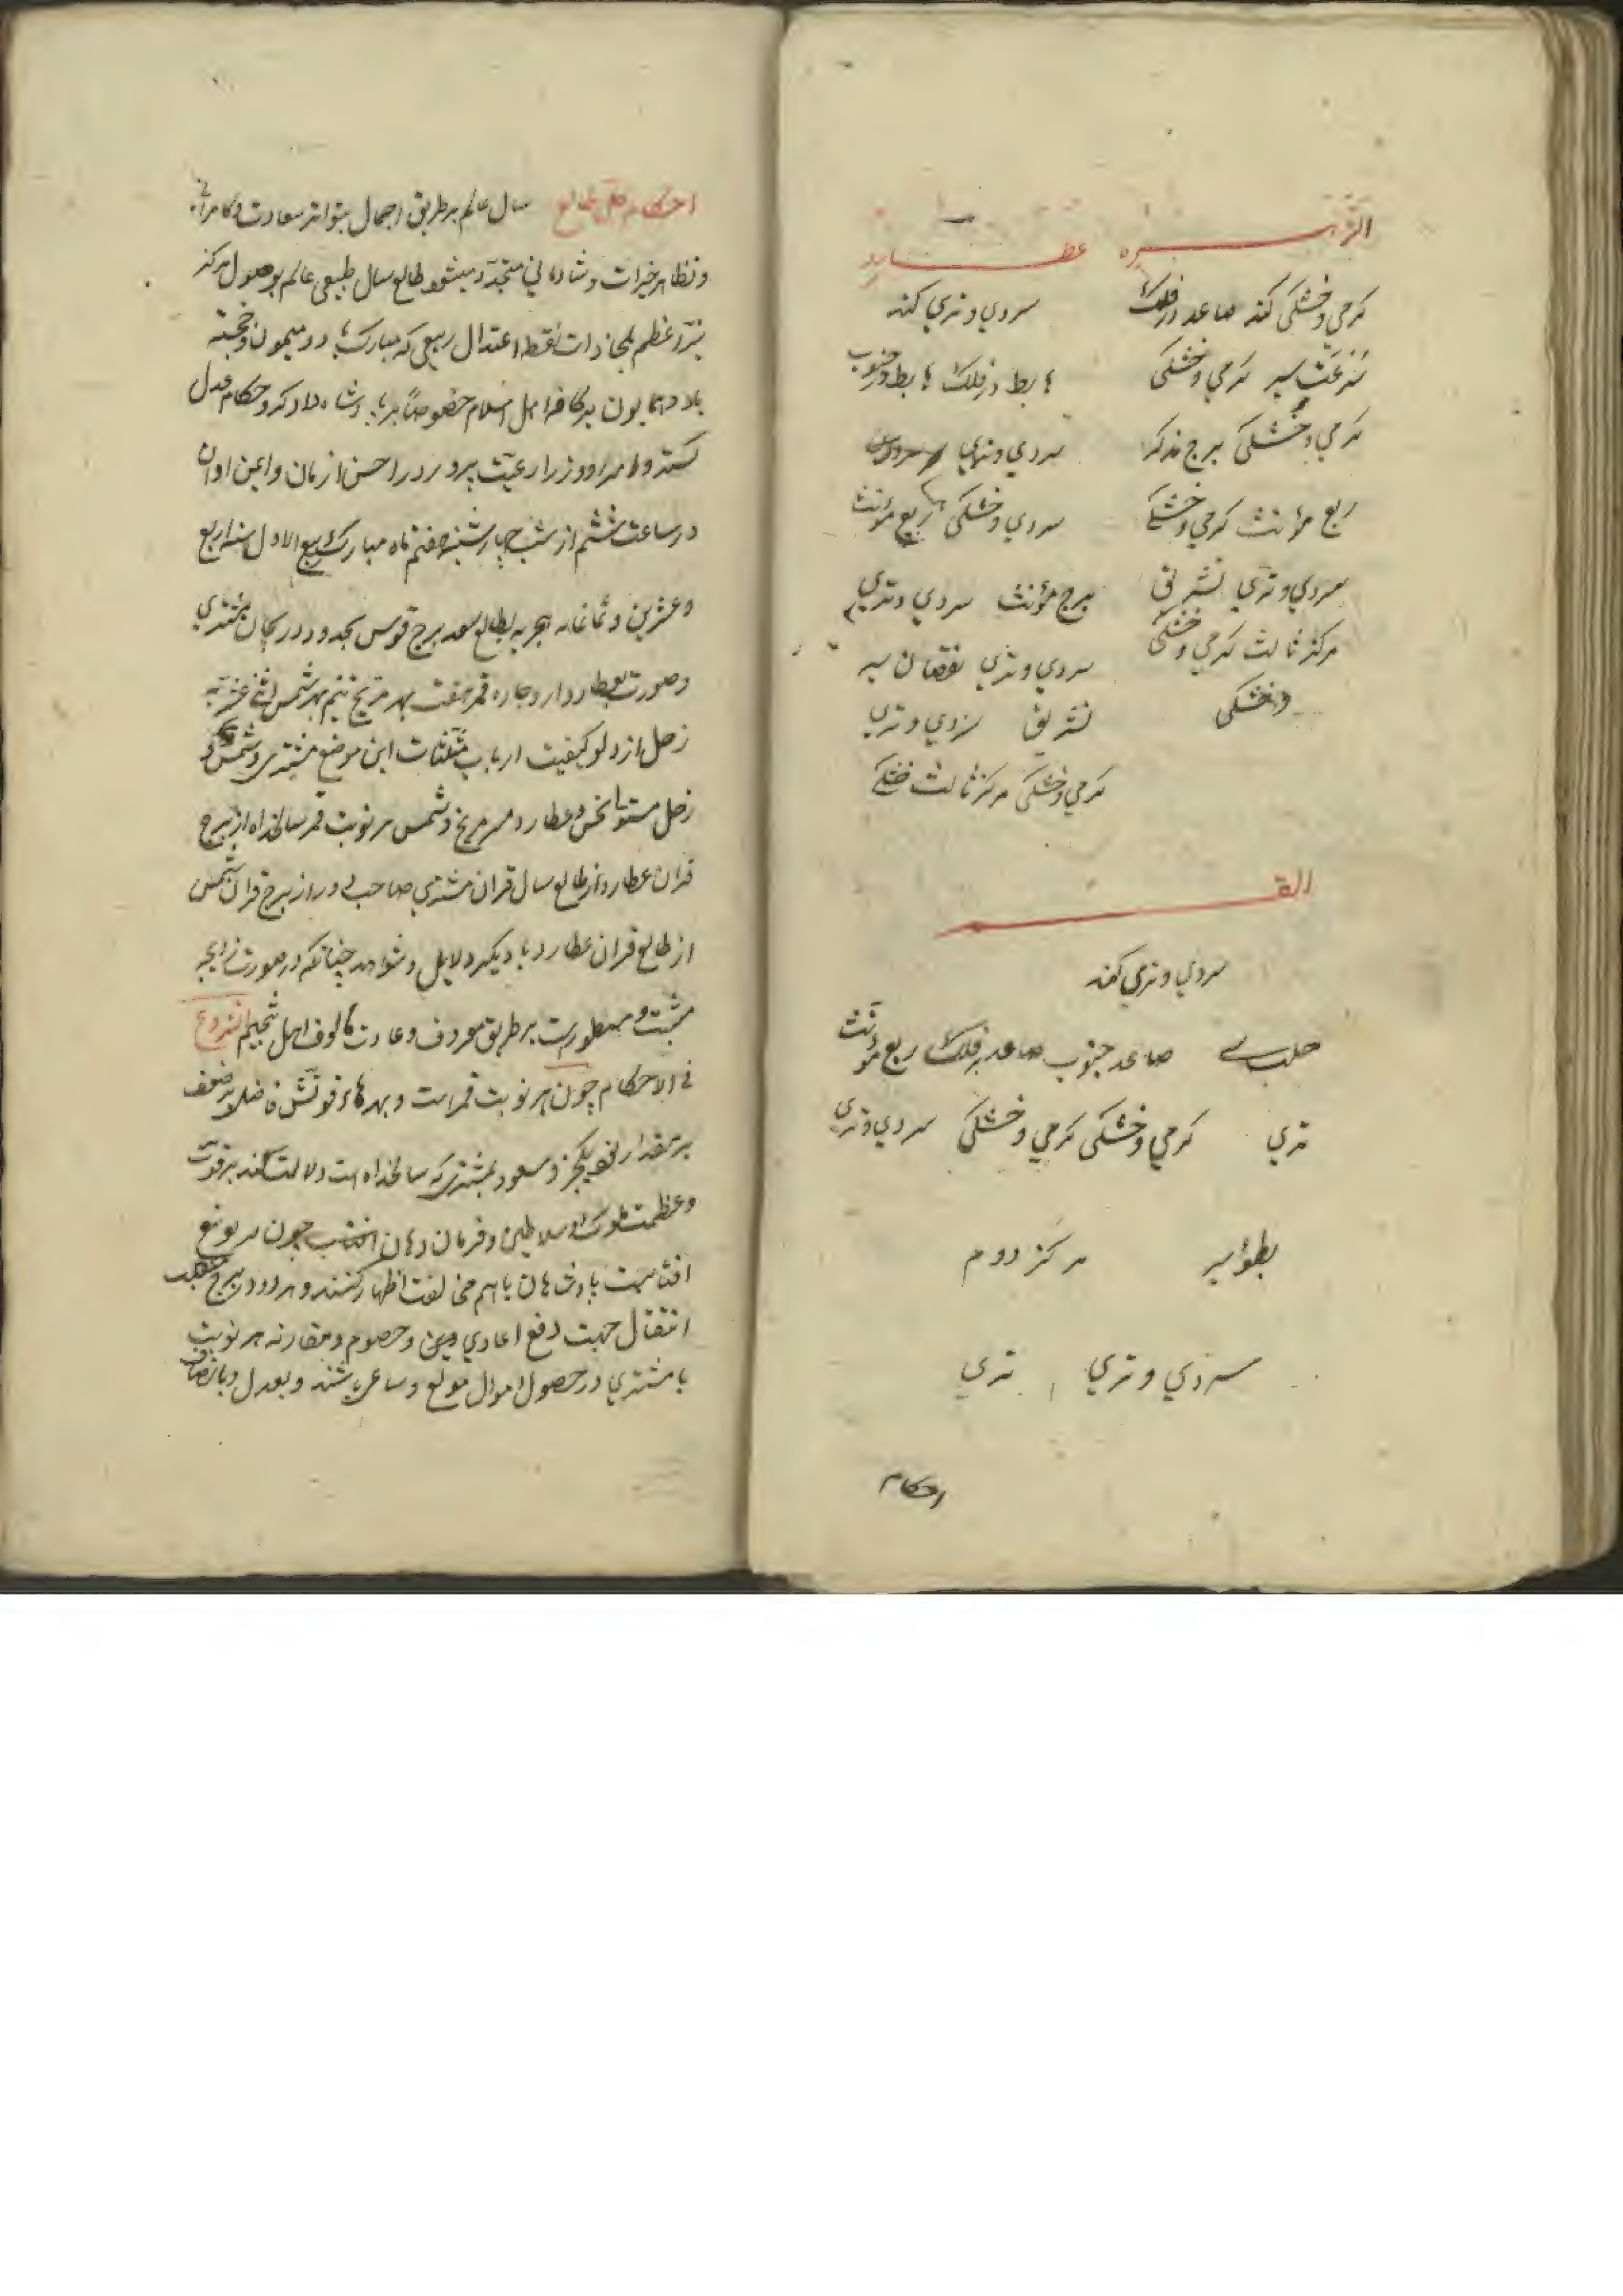 الزهره عطارد
گرمي و خشکی کند صاعد در فلک سردي و تري کند
سرعت سیر گرمي و خشکی هابط در فلک هابط در جنوب
گرمي و خشکی برج مذکر سردي و تري
ربع مؤنث گرمي و خشکی سردي و خشکی ربع مؤنث
سردي و تري تشریق برج مؤنث سردي و تري
مرکز ثالث گرمي و خشکی سردي و تري نقصان سیر
و خشکی تشریق سردي و تري
گرمي و خشکی مرکز ثالث خشکی
القمر
سردي و تري کند
حلب صاعد جنوب صاعد در فلک ربع مؤنث
تري گرمي و خشکی گرمي و خشکی سردي و تري
بطؤ سیر مرکز دوم
سردي و تري تري
احکام
احکام طالع سال عالم بر طریق اجمال بتواتر سعادت و کامرانی
و تظاهر خیرات و شادمانی متجدد میشود طالع سال طبیعی عالم بوصول مرکز
نیر اعظم بمحاذات نقطه اعتدال ربیعی که مبارک باد و میمون و خجسته
باد و همایون بر کافه اهل اسلام خصوصاً بر پادشاه دادگر و حکام عدل
گستر و امرا و وزرا رعیت پرور در احسن ازمان و ایمن اوان
در ساعت ششم از شب چهارشنبه هفتم ماه مبارک ربیع الاول سنه اربع
و عشرین و ثمانمایه هجریه بطالع سعد برج قوس بحد و دریجان مشتري
و صورت عطارد اروجاره قمر هفت بهر مریخ نیم بهر شمس اثنی عشریه
زحل از دلو کیفیت ارباب مثلثات این موضع مشتري و شمس
زحل مستولی نحس و عطارد مریخ و شمس هر نوبت قمر سالخداه از برج
قران عطارد از طالع سال قران مشتري صاحب دور از برج قران شمس
از طالع قران عطارد با دیگر دلایل و شواهد چنانکه در صورت زایجه
مثبت و مسطورست بر طریق معروف و عادت مالوف اهل تنجیم الشروع
فی الاحکام چون هر نوبت قمرست و بهرهاء قوتش فاضل بر ضعف
بر مقدار یکجزو مسعود بمشتري که سالخداه است دلالت کند بر قوت
و عظمت ملوک و سلاطین و فرمان دهان چون سر بوضع
افتاست پادشاهان با هم مخالفت اظهار کنند و هر دو در برج منقلب
انتقال جهت دفع اعادي دین و خصوم و مقارنه هر نوبت
با مشتري در حصول اموال مولع و ساعی باشند و بعدل و بانصاف